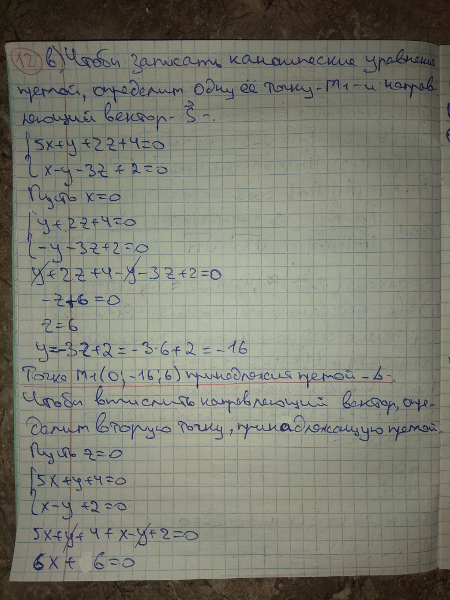 12 в) Чтобы записать канонические уравнения
прямой, определим одну её точку - M1 - и направ
ляющий вектор - S -.
{5x+y+2z+4=0
{x-y-3z+2=0
Пусть x=0
{y+2z+4=0
{-y-3z+2=0
y+2z+4-y-3z+2=0
-z+6=0
z=6
y=-3z+2=-3·6+2=-16
Точка M1(0;-16;6) принадлежит прямой -L-
Чтобы вычислить направляющий вектор, опре-
делим вторую точку, принадлежащую прямой.
Пусть z=0
{5x+y+4=0
{x-y+2=0
5x+y+4+x-y+2=0
6x+6=0